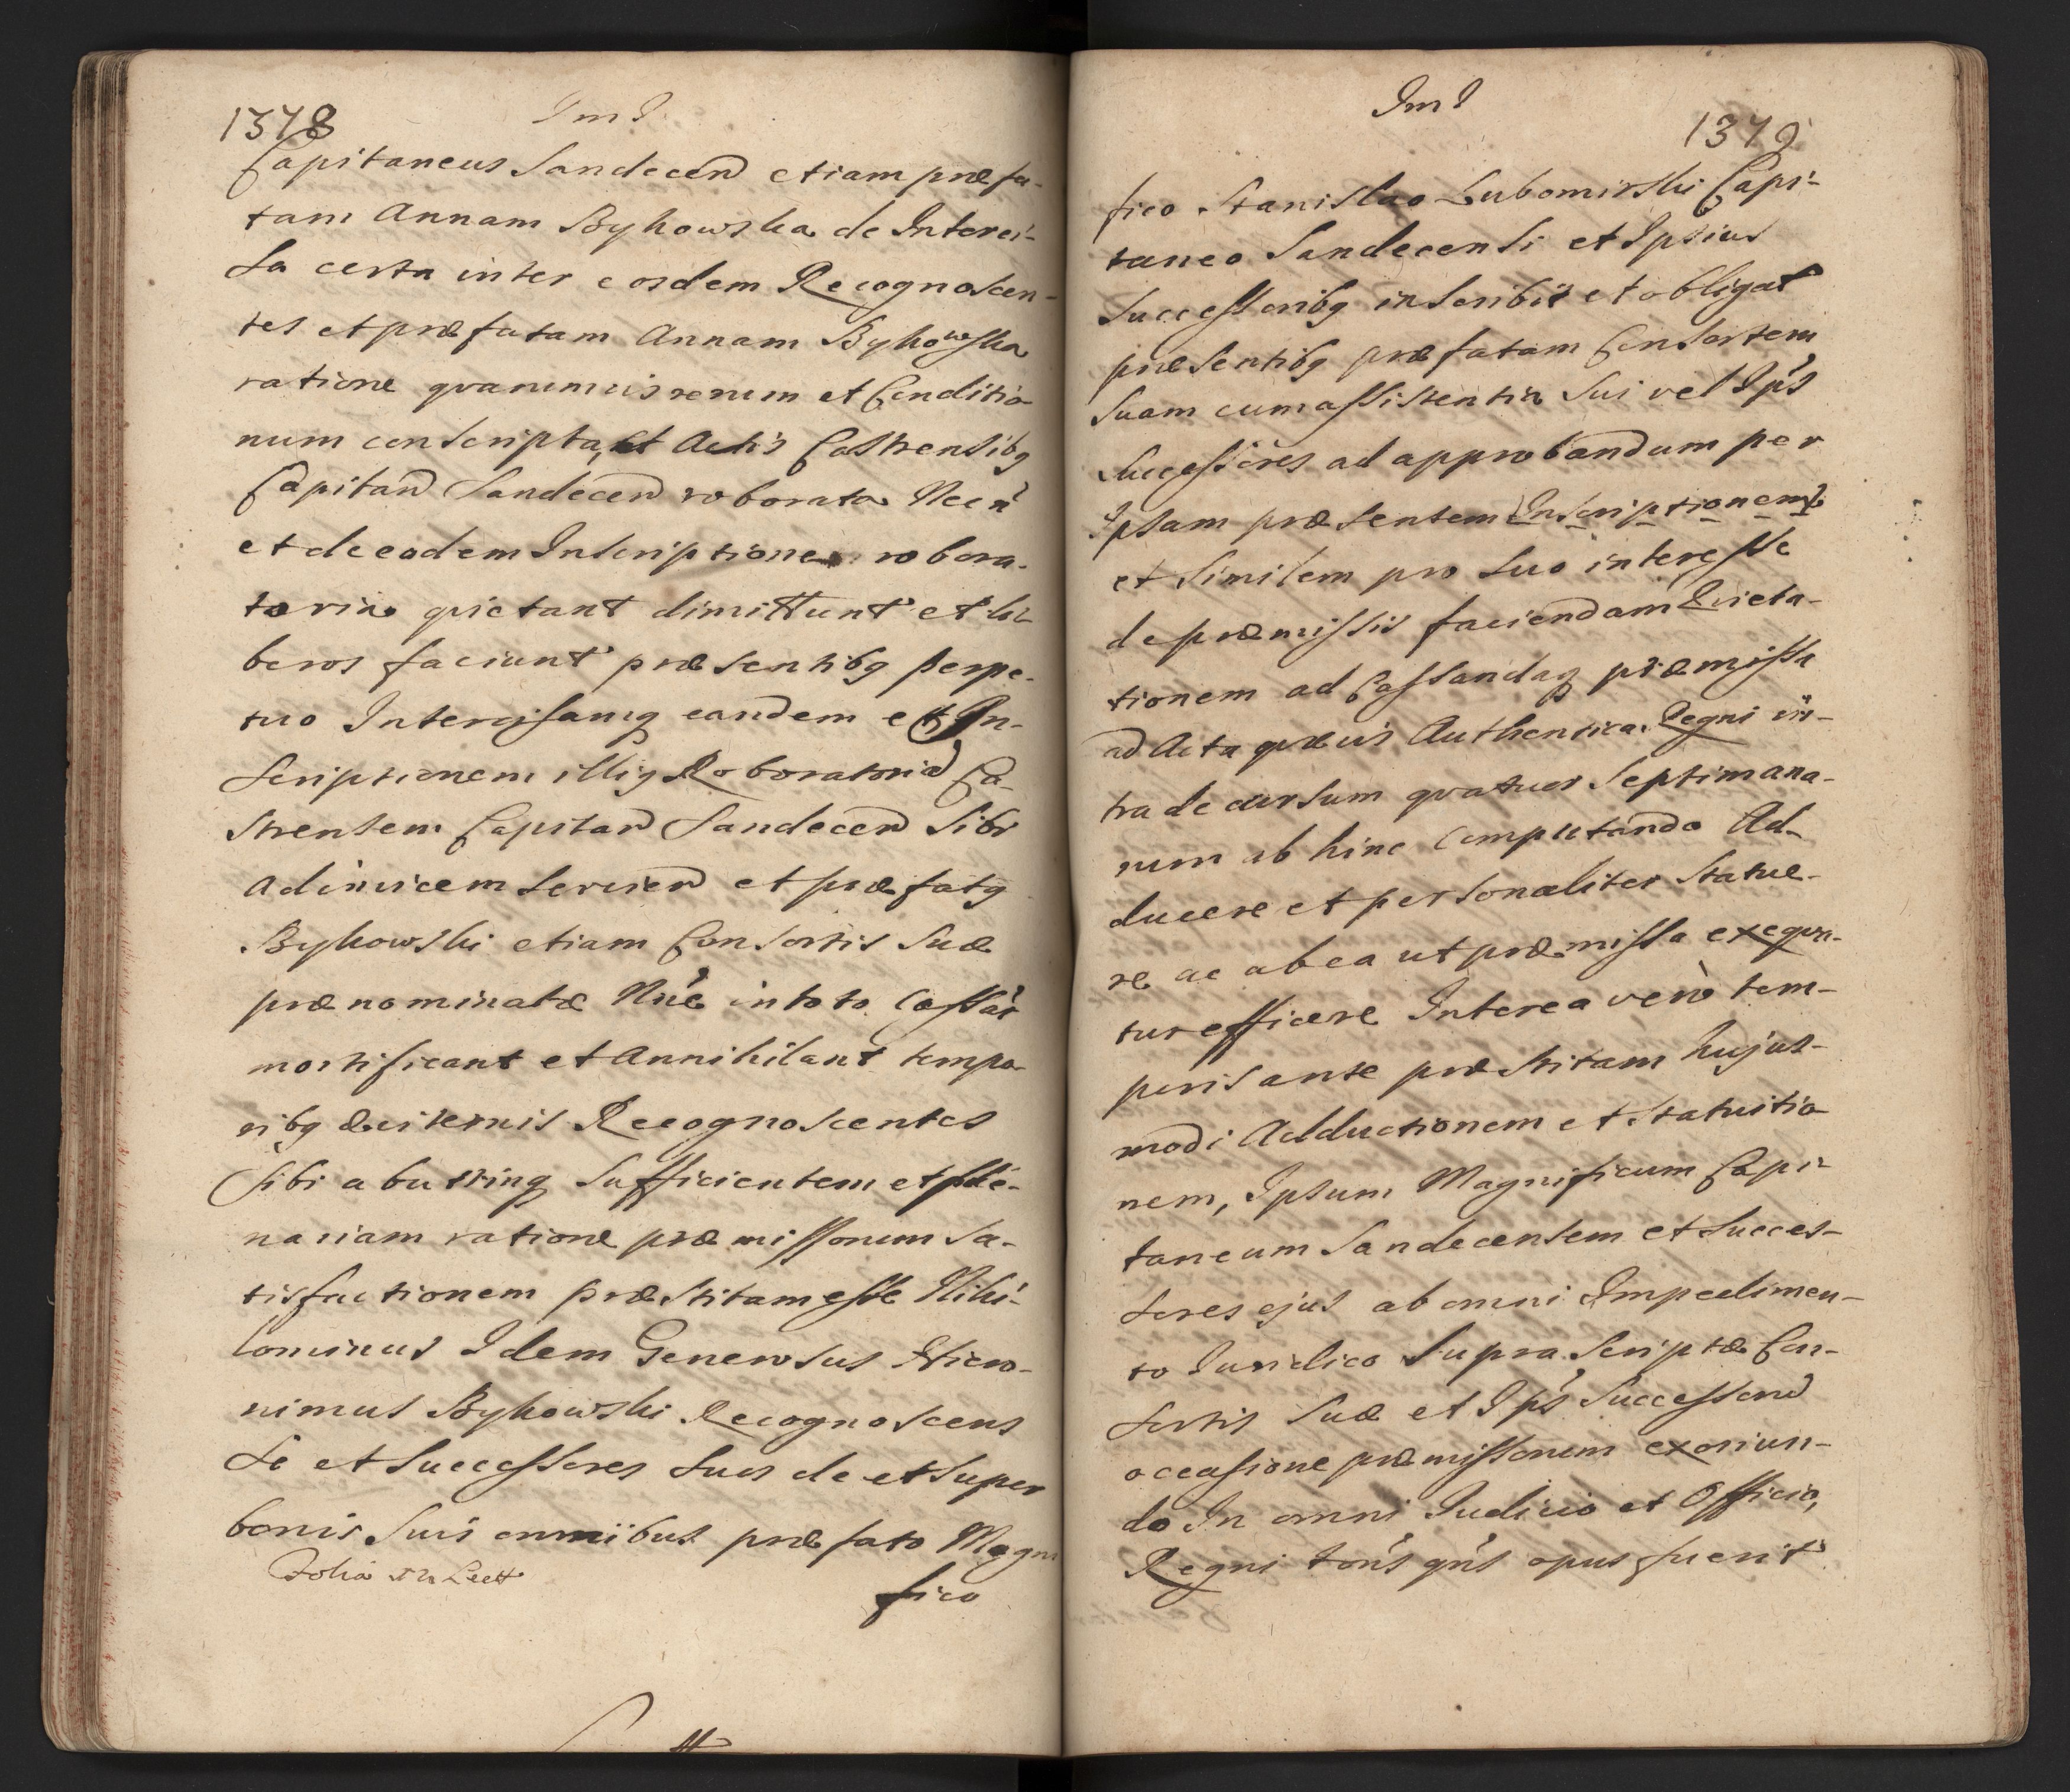 1378
Im I
Capitaneus Sandecen etiam præfa-
tam Annam Bykowska de Interci-
sa certa inter eosdem Recognoscen-
tes et præfatam Annam Bykowska
ratione quarumvis rerum et Conditio-
num conscripta, et Actis Castrensibq
Capitan Sandecen roborata Necn
et de eadem Inscriptione robora-
toria quietant dimittunt et li-
beros faciunt præsentibq perpe-
tuo Intercisamq eandem et In-
scriptionem illiq Roboratoria Ca-
strensem Capitan Sandecen sibi
adinvicem servien et præfatq
Bykowski etiam Consortis suæ
prænominatæ Nne in toto Cassat
mortificant et Annihilant tempo-
ribq æviternis Recognoscentes
sibi ab utrinq sufficientem et ple-
nariam ratione præmissorum sa-
tisfactionem præstitam esse Nihi-
lominus Idem Generosus Hiero-
nimus Bykowski Recognoscens
se et Successores suos de et super
bonis suis omnibus præfato Magni
fico
Im I
1379
fico Stanislao Lubomirski Capi-
taneo Sandecensi et Ipsius
Successoribq inscribit et obligat
præsentibq præfatam Consortem
suam cum assistentia sui vel Ips
Successores ad approbandum per
Ipsam præsentem Inscriptionem
et similem pro suo interesse
de præmissis faciendam Quieta-
tionem ad Cassandaq præmissa
ad Acta quævis Authentica Regni in-
tra decursum quatuor Septimana-
rum ab hinc computando Ad-
ducere et personaliter statue-
re ac ab ea ut præmissa exequa-
tur efficere Interea vero tem-
poris ante præstitam hujus-
modi Adductionem et Statuitio
nem, Ipsum Magnificum Capi-
taneum Sandecensem et Succes-
sores ejus ab omni Impedimen-
to Juridico supra scriptæ Con-
sortis suæ et Ips Successorum
occasione præmissorum exoriun-
do In omni Judicio et Officio,
Regni tons qns opus fuerit